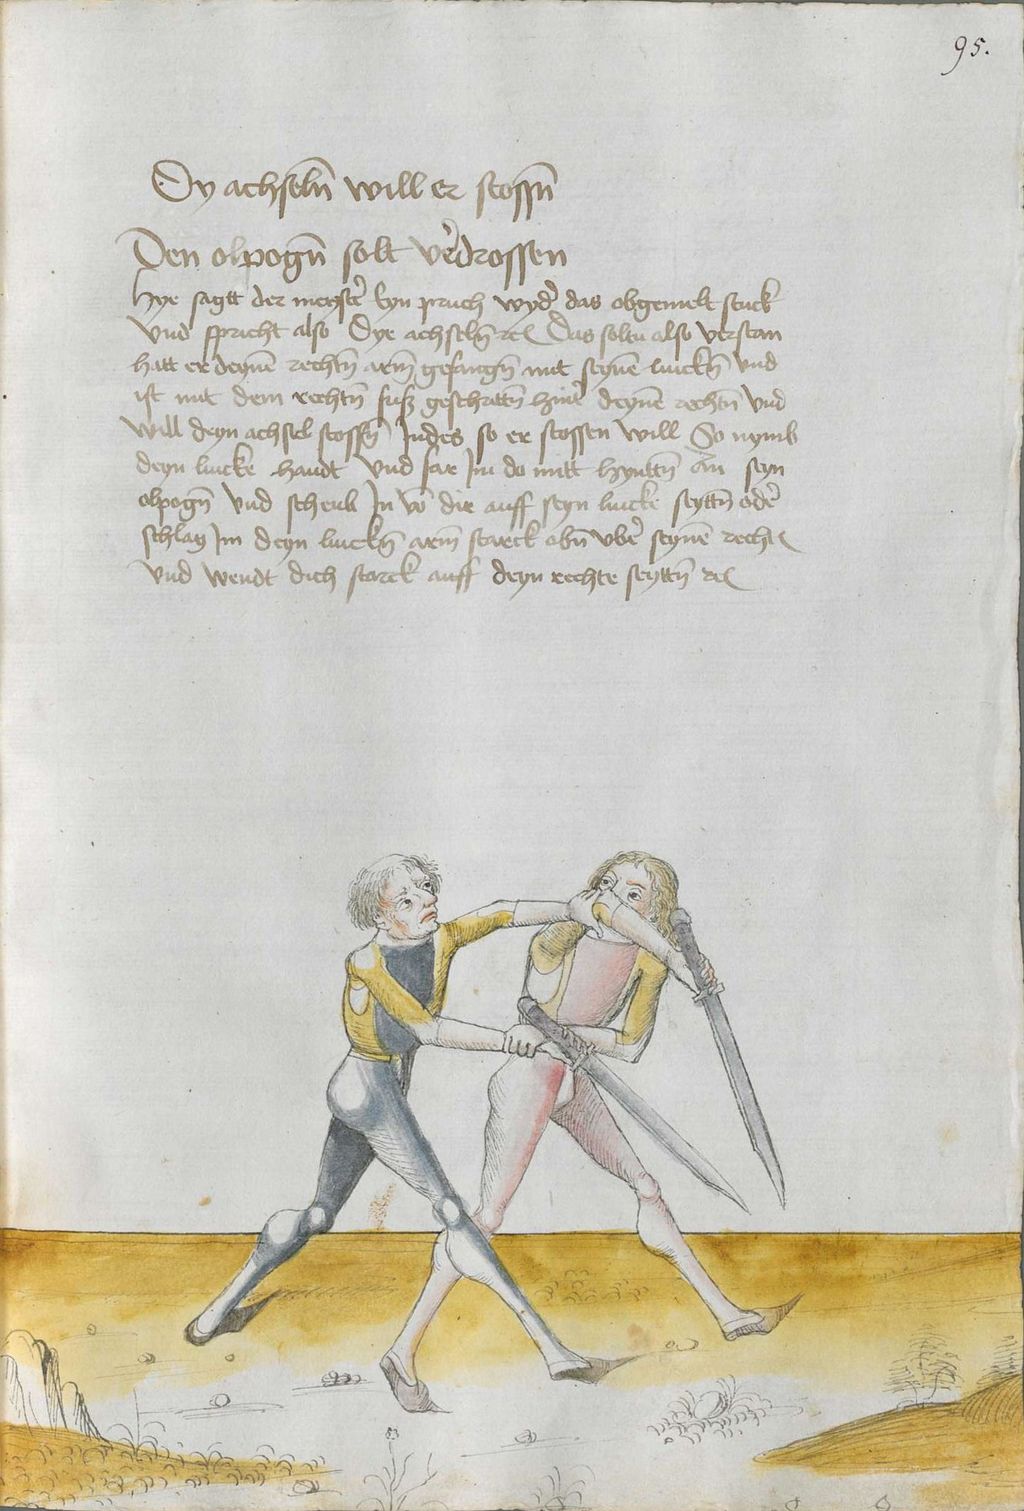 95.
Dy achseln̄ will er stossn̄
Den olpogn̄ solt v̄erdrossen
Hye sagtt der meyst̄er Eyn pruch wyd̄er das obgemelt stuck
Vnd spricht also Dye achseln̄ rc Das soltu also verstan
hatt er deynē rechtn̄ arm̄ gefangn̄ mit seynē linckn̄ vnd
ist mit dem rechtn̄ fusz geschrittn̄ hint̄er deynē rechtn̄ Vnd
will deyn achsel stossn̄ Indes so er stossen will So nymb
deyn lincke handt Vnd far Im do mitt hynttn̄ An seyn
olpogn̄ Vnd scheub In vō dir auff seyn lincke seyttn̄ od̄er
schlag Im deyn linckn̄ arm̄ starck obn̄ vb̄er seynē recht
Vnd wendt dich starck auff deyn rechte seyttn̄ rc